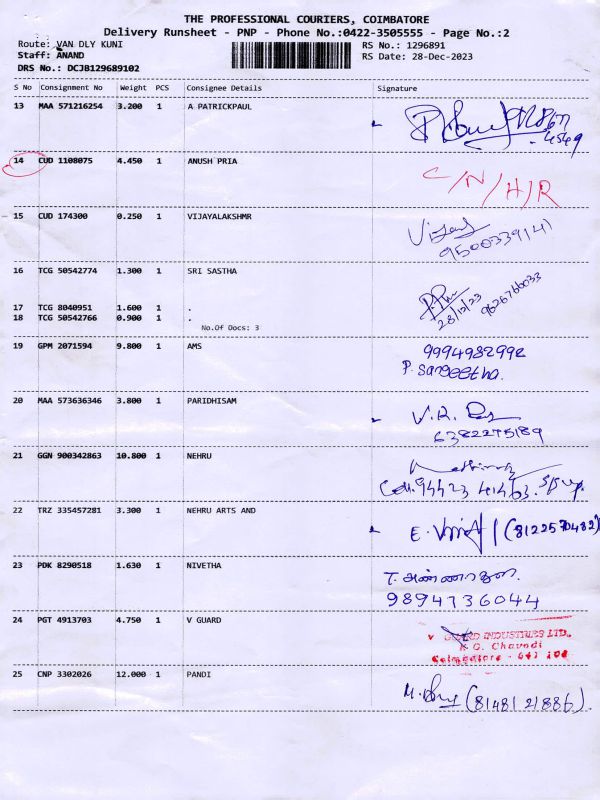 THE PROFESSIONAL COURIERS, COIMBATORE
Delivery Runsheet - PNP - Phone No.:0422-3505555 - Page No.:2
Route: VAN DLY KUNI
RS No.: 1296891
Staff: ANAND
RS Date: 28-Dec-2023
DRS No.: DCJB129689102
S No Consignment No Weight PCS Consignee Details Signature
13 MAA 571216254 3.200 1 A PATRICKPAUL
14 CUD 1108075 4.450 1 ANUSH PRIA C/N/H/R
15 CUD 174300 0.250 1 VIJAYALAKSHMR
9500339141
16 TCG 50542774 1.300 1 SRI SASTHA
28/12/23 9626766033
17 TCG 8040951 1.600 1 .
18 TCG 50542766 0.900 1 .
No.Of Docs: 3
19 GPM 2071594 9.800 1 AMS 9994982992
P. Sangeetha.
20 MAA 573636346 3.800 1 PARIDHISAM V.R.
6382275189
21 GGN 900342863 10.800 1 NEHRU
Cell. 94423 41463.
22 TRZ 335457281 3.300 1 NEHRU ARTS AND E. (8122570482)
23 PDK 8290518 1.630 1 NIVETHA T. அண்ணாதுரை.
9894736044
24 PGT 4913703 4.750 1 V GUARD V GUARD INDUSTRIES LTD.,
K G. Chavadi
Coimbatore - 641 105
25 CNP 3302026 12.000 1 PANDI M. (8148121886).